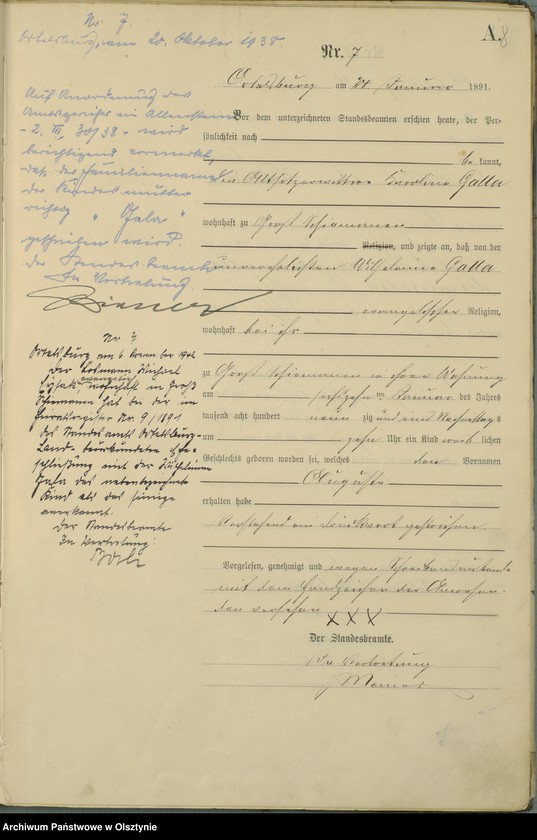 A.
8
Nr. 7.
Ortelsburg, am 20. Oktober 1938.
Auf Anordnung des
Amtsgerichts in Allenstein
- 2. III. 30/38 - wird
berichtigend vermerkt,
daß der Familienname
der Kindesmutter
richtig "Gala"
geschrieben wird.
Der Standesbeamte
In Vertretung.
Nr. 7
Ortelsburg am 6. November 1942
Der Losmann Michael
evangelisch, wohnhaft in Groß
Schiemanen hat bei der im
Heiratsregister Nr. 9/1891
des Standesamts Ortelsburg-
Land beurkundeten Ehe-
schließung mit der Wilhelmine
Gala das nebenbezeichnete
Kind als das seinige
anerkannt.
Der Standesbeamte
In Vertretung:
Nr. 7
Ortelsburg am 24 Januar 1891.
Vor dem unterzeichneten Standesbeamten erschien heute, der Per-
sönlichkeit nach
be kannt,
die Altsitzerwittwe Karoline Galla
wohnhaft zu Groß Schiemanen
Religion, und zeigte an, daß von der
unverehelichten Wilhelmine Galla
evangelischer Religion,
wohnhaft bei ihr
zu Groß Schiemanen in ihrer Wohnung
am sechszehnten Januar des Jahres
tausend acht hundert neun zig und eins Nachmittags
um zehn Uhr ein Kind weib lichen
Geschlechts geboren worden sei, welches den Vornamen
Auguste
erhalten habe
Vorstehend ein Druckwort gestrichen.
Vorgelesen, genehmigt und wegen Schreibensunkunde
mit dem Handzeichen der Anwesen-
den versehen
XXX
Der Standesbeamte.
In Vertretung
Archiwum Państwowe w Olsztynie